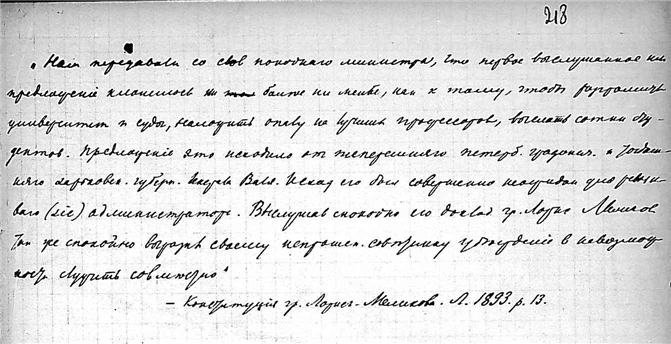 218
„Нам передавали со слов покойного министра, что первое выслушанное им
предложение клонилось ни более ни менее, как к тому, чтобы разгромить
университет и суды, наложить опалу на лучших профессоров, выслать сотни сту-
дентов. Предложение это исходило от теперешняго петерб. градонач. и тогдаш-
няго харьковск. губерн. Валя. Исход его был совершенно неожидан для
ваго (sic) администратора. Выслушав спокойно его доклад гр. Лорис Меликов
так же спокойно выразил своему непрошен. советнику убеждение в невозмож-
ности служить совместно“
– Конституция гр. Лорис-Меликова. Л. 1893. p. 13.